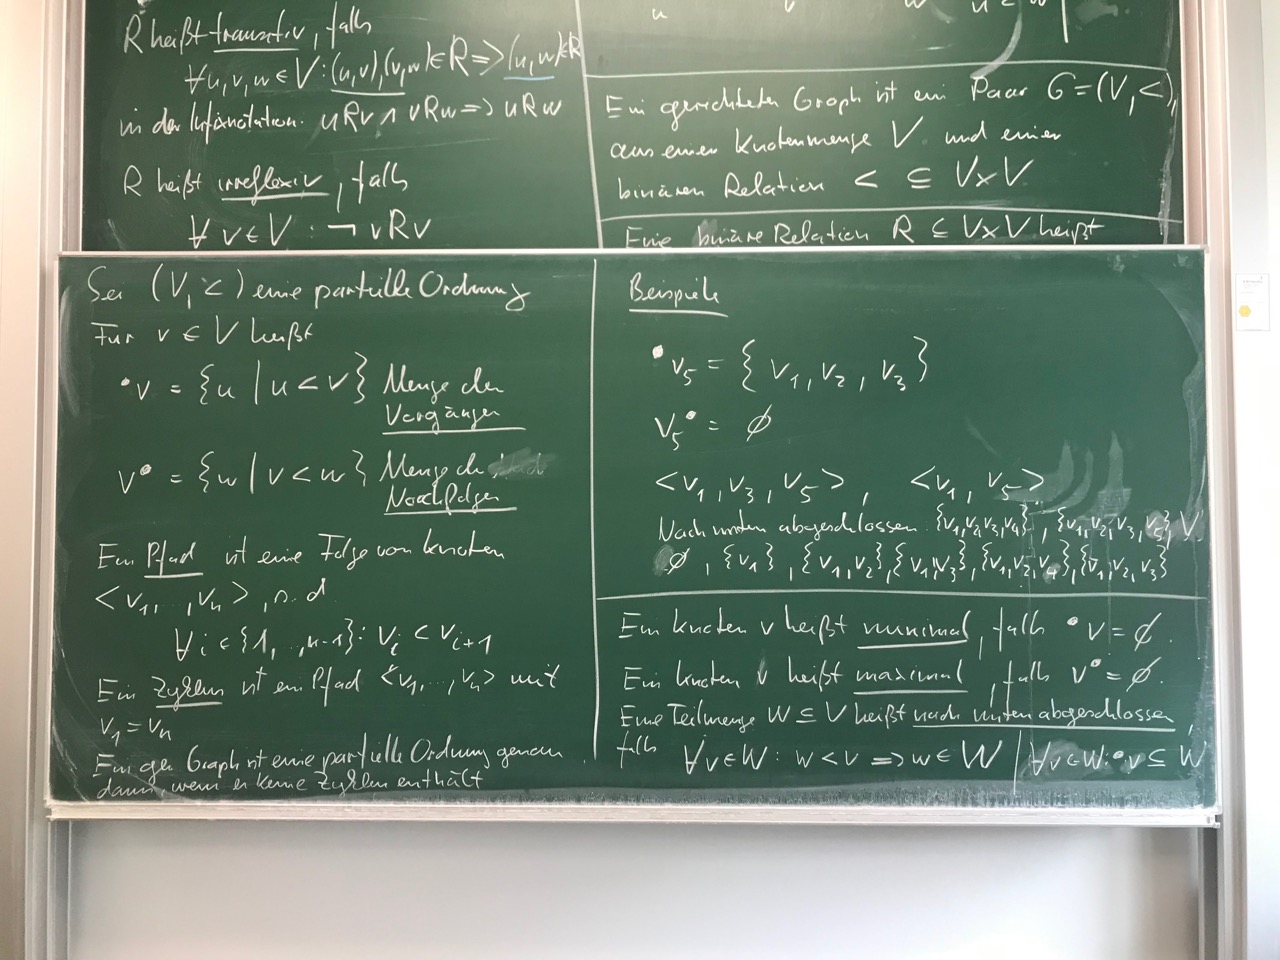 R heißt transitiv, falls
∀u,v,w ∈ V : (u,v),(v,w) ∈ R => (u,w) ∈ R
in der Infixnotation: uRv ∧ vRw => uRw
R heißt irreflexiv, falls
∀ v ∈ V : ¬ vRv
u v w u < w
Ein gerichteter Graph ist ein Paar G = (V, <),
aus einer Knotenmenge V und einer
binären Relation < ⊆ V×V
Eine binäre Relation R ⊆ V×V heißt
Sei (V, <) eine partielle Ordnung
Für v ∈ V heißt
•v = {u | u < v} Menge der
Vorgänger
v• = {w | v < w} Menge der
Nachfolger
Ein Pfad ist eine Folge von Knoten
<v1, .., vn>, s. d.
∀i ∈ {1, .., n-1} : vi < vi+1
Ein Zyklus ist ein Pfad <v1, .., vn> mit
v1 = vn
Ein ger Graph ist eine partielle Ordnung genau
dann, wenn er keine Zyklen enthält
Beispiele
•v5 = { v1, v2, v3 }
v5• = ∅
<v1, v3, v5>, <v1, v5>
Nach unten abgeschlossen: {v1,v2,v3,v4}, {v1,v2,v3,v5}, V
∅, {v1}, {v1,v2}, {v1,v3}, {v1,v2,v4}, {v1,v2,v3}
Ein Knoten v heißt minimal, falls •v = ∅.
Ein Knoten v heißt maximal, falls v• = ∅.
Eine Teilmenge W ⊆ V heißt nach unten abgeschlossen,
falls ∀v∈W : w < v => w ∈ W | ∀v∈W: •v ⊆ W